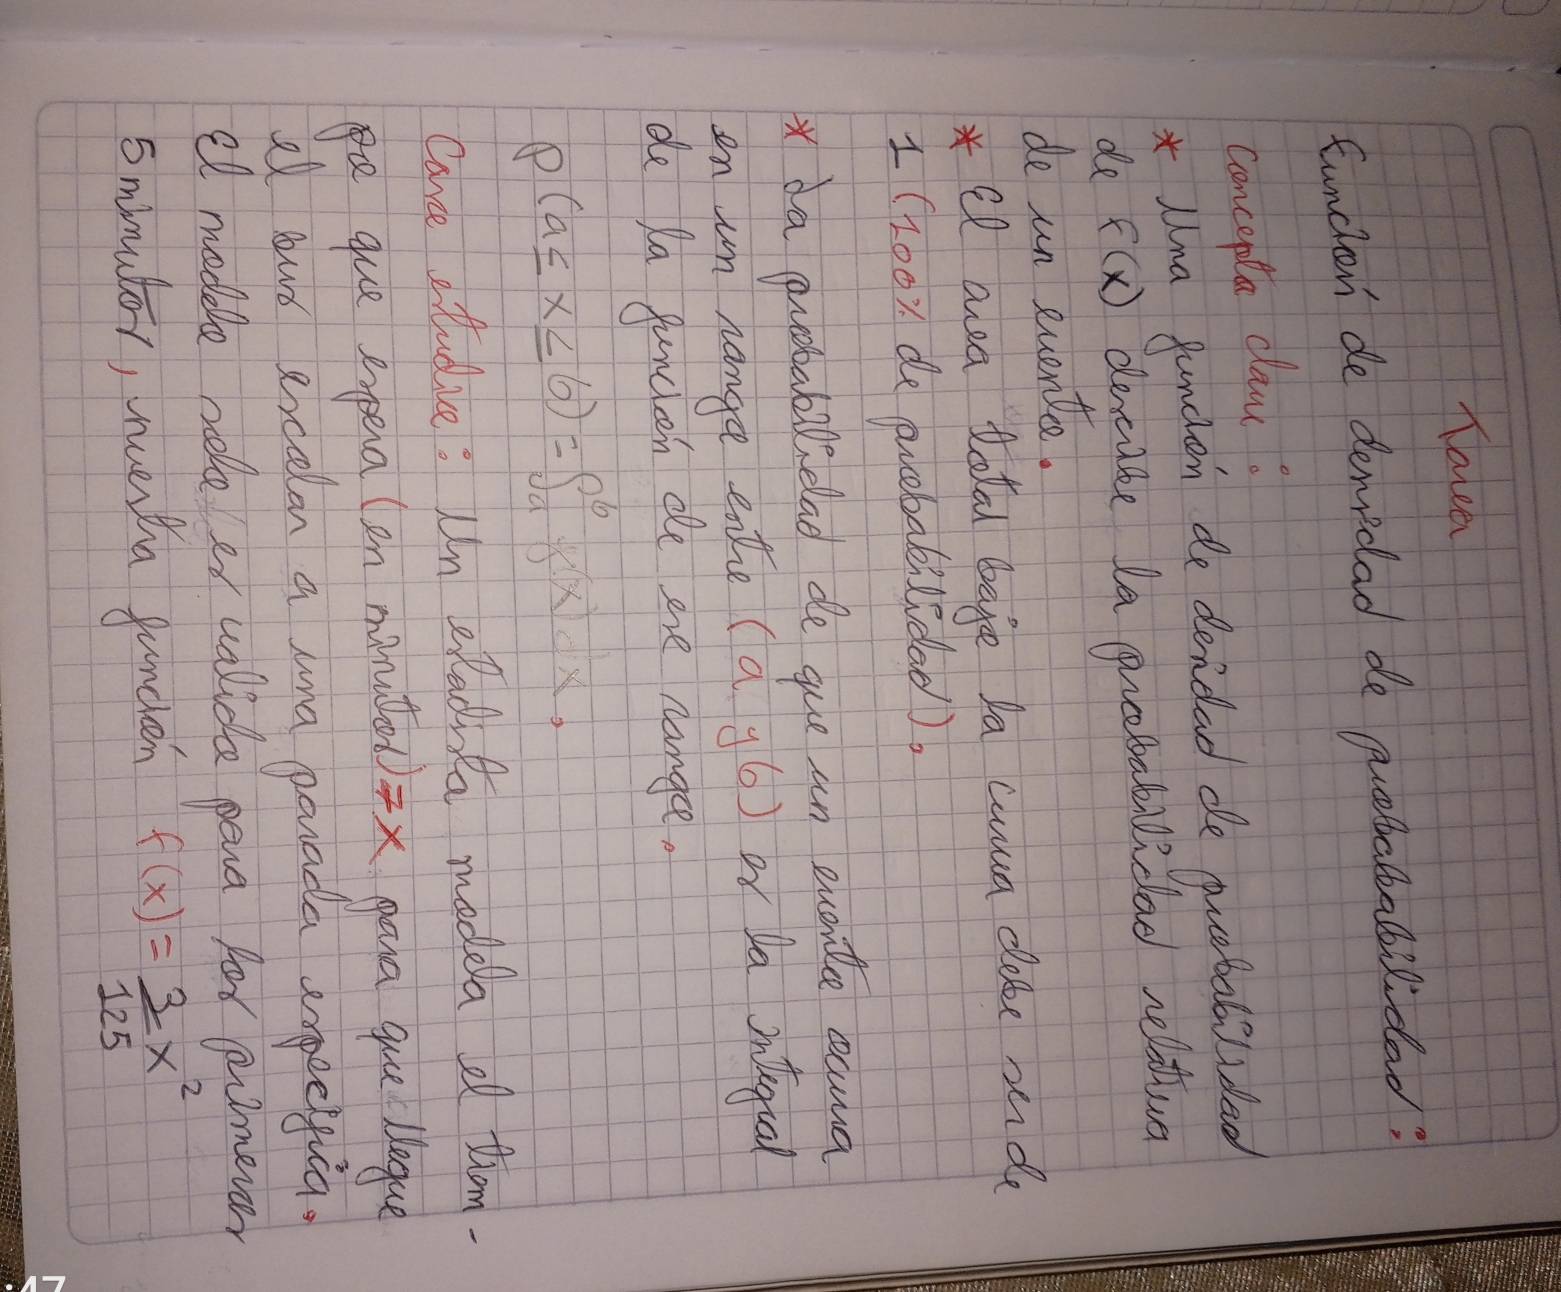 Tarea
Función de densidad de probabbabilidad:
Concepto clave:
* Una función de denidad de probabilidad
de f(x) describe la probabilidad relativa
de un evento.
* El area total bajo la curva debe ser de
1 (100% de probabilidad).
* La probabilidad de que un evento ocurra
en un rango entre (a y b) es la integral
de la función de ese rango.
P(a ≤ x ≤ b) = ∫ₐᵇ f(x) dx.
Caso estudio: Un estadista modela el tiem-
po que espera (en minutos) = x para que llegue
el bus escolar a una parada especifica.
El modelo solo es valido para los primeros
5 minutos, nuestra función f(x) = 3/125 x²
:47